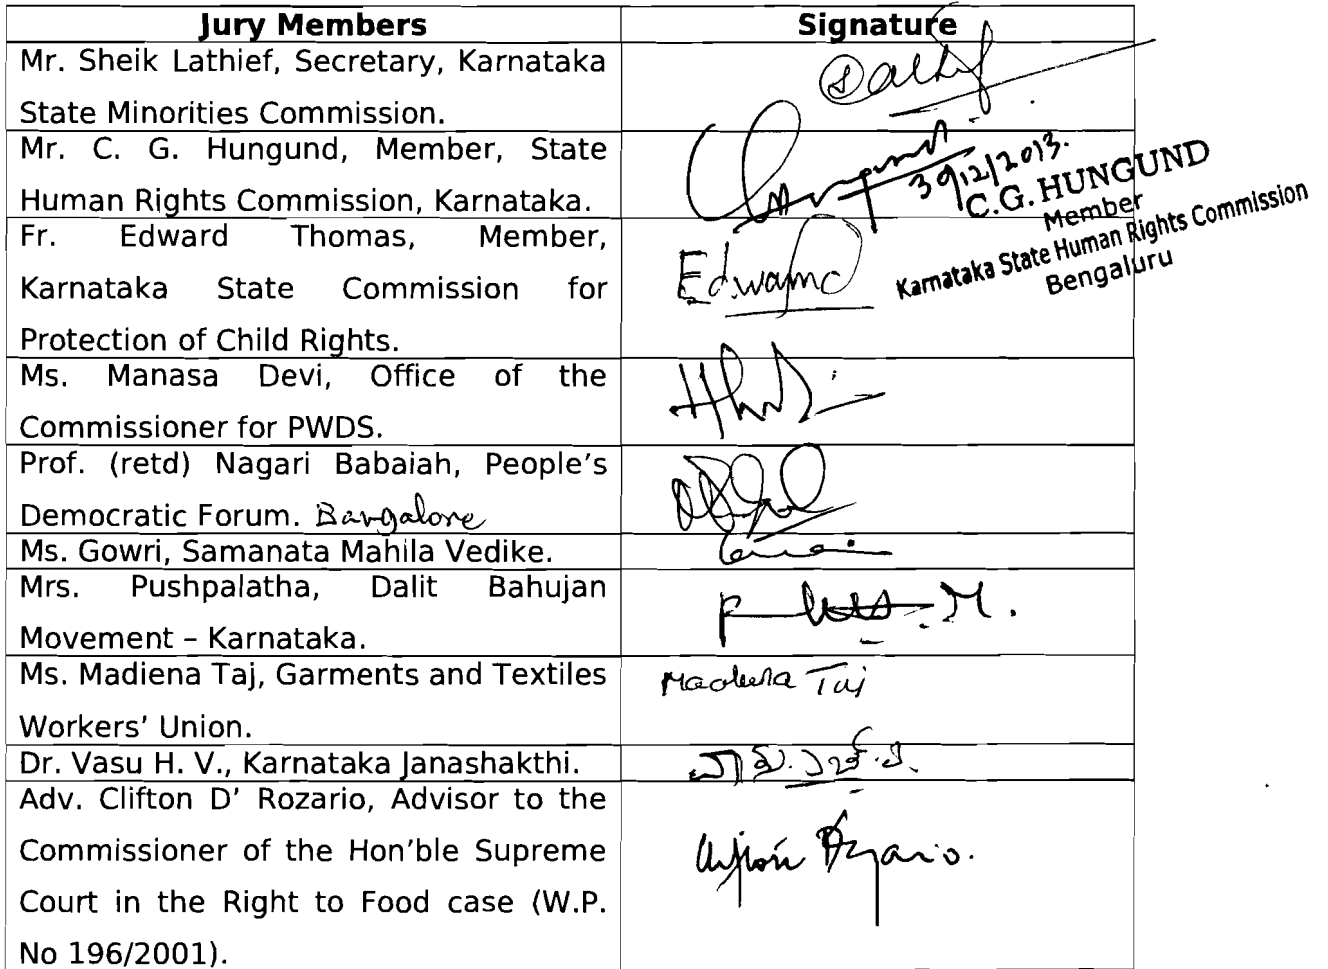 Jury Members Signature
Mr. Sheik Lathief, Secretary, Karnataka
State Minorities Commission.
Mr. C. G. Hungund, Member, State
Human Rights Commission, Karnataka.
30/12/2013.
C.G. HUNGUND
Member
Karnataka State Human Rights Commission
Bengaluru
Fr. Edward Thomas, Member,
Karnataka State Commission for
Protection of Child Rights.
Edward
Ms. Manasa Devi, Office of the
Commissioner for PWDS.
Prof. (retd) Nagari Babaiah, People's
Democratic Forum. Bangalore
Ms. Gowri, Samanata Mahila Vedike.
Mrs. Pushpalatha, Dalit Bahujan
Movement – Karnataka.
Ms. Madiena Taj, Garments and Textiles
Workers' Union.
Taj
Dr. Vasu H. V., Karnataka Janashakthi.
ವಾಸು. ಎಚ್. ವಿ.
Adv. Clifton D' Rozario, Advisor to the
Commissioner of the Hon'ble Supreme
Court in the Right to Food case (W.P.
No 196/2001).